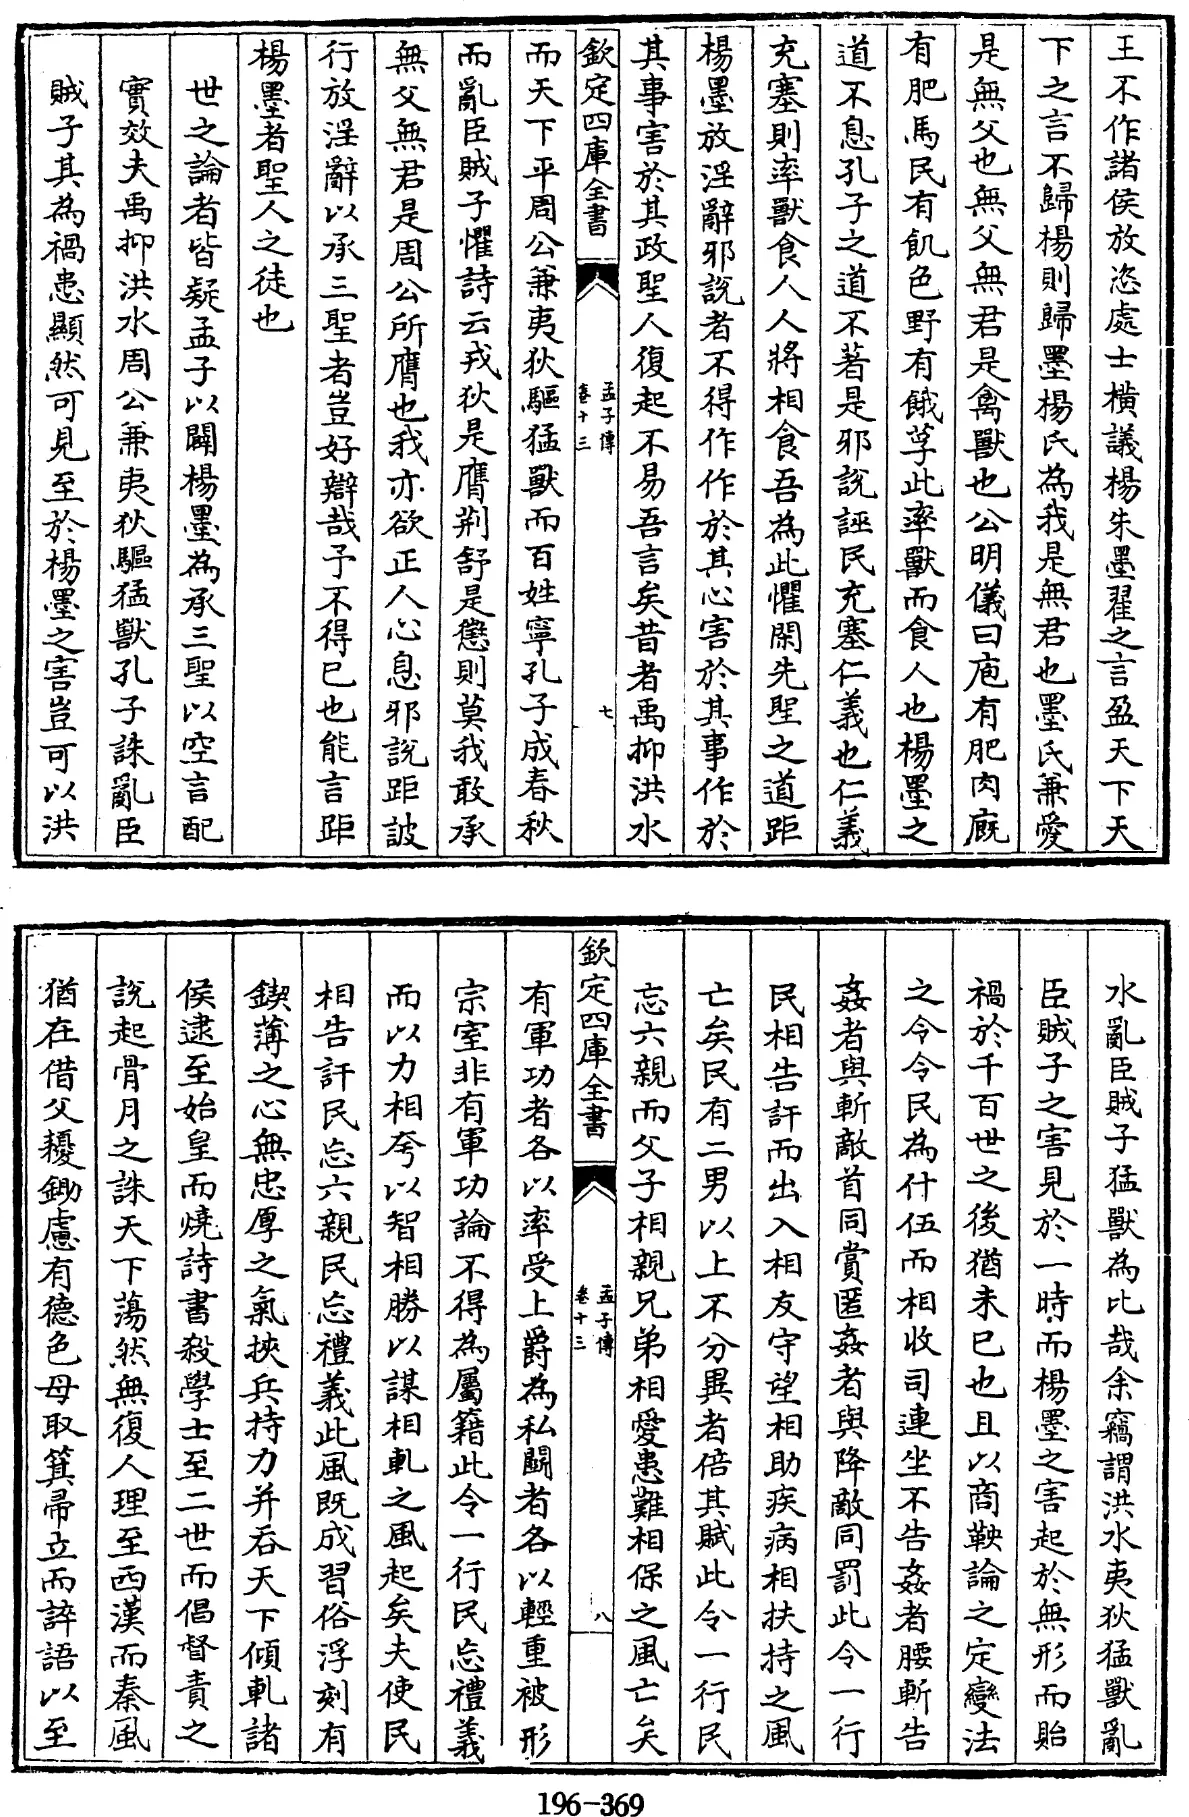 王不作諸侯放恣處士橫議楊朱墨翟之言盈天下天
下之言不歸楊則歸墨楊氏為我是無君也墨氏兼愛
是無父也無父無君是禽獸也公明儀曰庖有肥肉廐
有肥馬民有飢色野有餓莩此率獸而食人也楊墨之
道不息孔子之道不著是邪說誣民充塞仁義也仁義
充塞則率獸食人人將相食吾為此懼閑先聖之道距
楊墨放淫辭邪說者不得作作於其心害於其事作於
其事害於其政聖人復起不易吾言矣昔者禹抑洪水
欽定四庫全書
孟子傳
卷十三
七
而天下平周公兼夷狄驅猛獸而百姓寧孔子成春秋
而亂臣賊子懼詩云戎狄是膺荆舒是懲則莫我敢承
無父無君是周公所膺也我亦欲正人心息邪說距詖
行放淫辭以承三聖者豈好辯哉予不得已也能言距
楊墨者聖人之徒也
世之論者皆疑孟子以闢楊墨為承三聖以空言配
實效夫禹抑洪水周公兼夷狄驅猛獸孔子誅亂臣
賊子其為禍患顯然可見至於楊墨之害豈可以洪
水亂臣賊子猛獸為比哉余竊謂洪水夷狄猛獸亂
臣賊子之害見於一時而楊墨之害起於無形而貽
禍於千百世之後猶未已也且以商鞅論之定變法
之令令民為什伍而相收司連坐不告姦者腰斬告
姦者與斬敵首同賞匿姦者與降敵同罰此令一行
民相告訐而出入相友守望相助疾病相扶持之風
亡矣民有二男以上不分異者倍其賦此令一行民
忘六親而父子相親兄弟相愛患難相保之風亡矣
欽定四庫全書
孟子傳
卷十三
八
有軍功者各以率受上爵為私鬭者各以輕重被形
宗室非有軍功論不得為屬籍此令一行民忘禮義
而以力相夸以智相勝以謀相軋之風起矣夫使民
相告訐民忘六親民忘禮義此風既成習俗浮刻有
鍥薄之心無忠厚之氣挾兵持力并吞天下傾軋諸
侯逮至始皇而燒詩書殺學士至二世而倡督責之
說起骨月之誅天下蕩然無復人理至西漢而秦風
猶在借父耰鋤慮有德色母取箕帚立而誶語以至
196-369